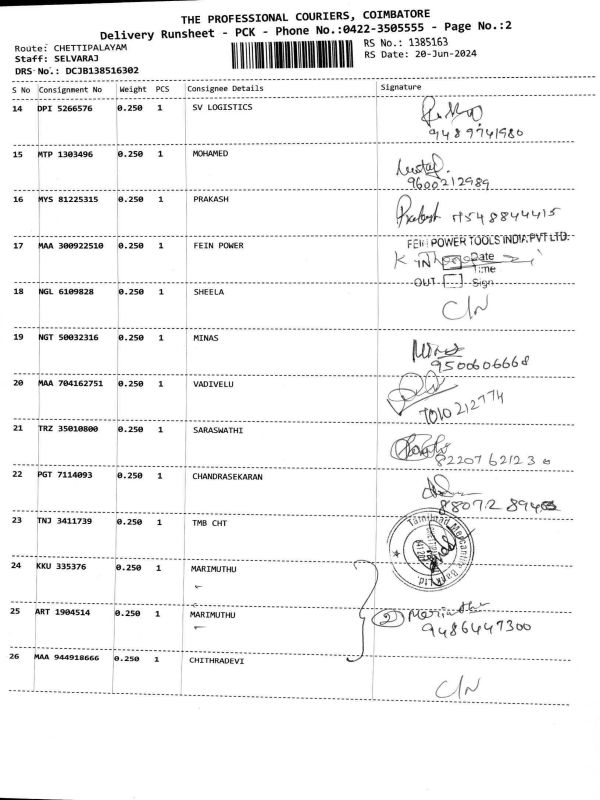 THE PROFESSIONAL COURIERS, COIMBATORE
Delivery Runsheet - PCK - Phone No.:0422-3505555 - Page No.:2
Route: CHETTIPALAYAM
Staff: SELVARAJ
DRS No.: DCJB138516302
RS No.: 1385163
RS Date: 20-Jun-2024
S No Consignment No Weight PCS Consignee Details Signature
14 DPI 5266576 0.250 1 SV LOGISTICS
9489741980
15 MTP 1303496 0.250 1 MOHAMED
9600212989
16 MYS 81225315 0.250 1 PRAKASH Prakash
17 MAA 300922510 0.250 1 FEIN POWER
FEIN POWER TOOLS INDIA PVT LTD.
IN Date
Time
OUT Sign
18 NGL 6109828 0.250 1 SHEELA C/N
19 NGT 50032316 0.250 1 MINAS
9500606668
20 MAA 704162751 0.250 1 VADIVELU
7010212774
21 TRZ 35010800 0.250 1 SARASWATHI
82207621230
22 PGT 7114093 0.250 1 CHANDRASEKARAN
88072
23 TNJ 3411739 0.250 1 TMB CHT
Tamilnad Mercantile Bank Ltd.
24 KKU 335376 0.250 1 MARIMUTHU
25 ART 1904514 0.250 1 MARIMUTHU
2 Marimuthu
9486447300
26 MAA 944918666 0.250 1 CHITHRADEVI C/N